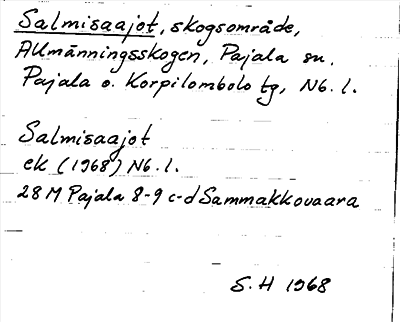 Salmisaajot, skogsområde,
Allmänningsskogen, Pajala sn,
Pajala o. Korpilombolo tg, Nb. l.
Salmisaajot
ek (1968) Nb. l.
28 M Pajala 8-9 c-d Sammakkovaara
S. H 1968